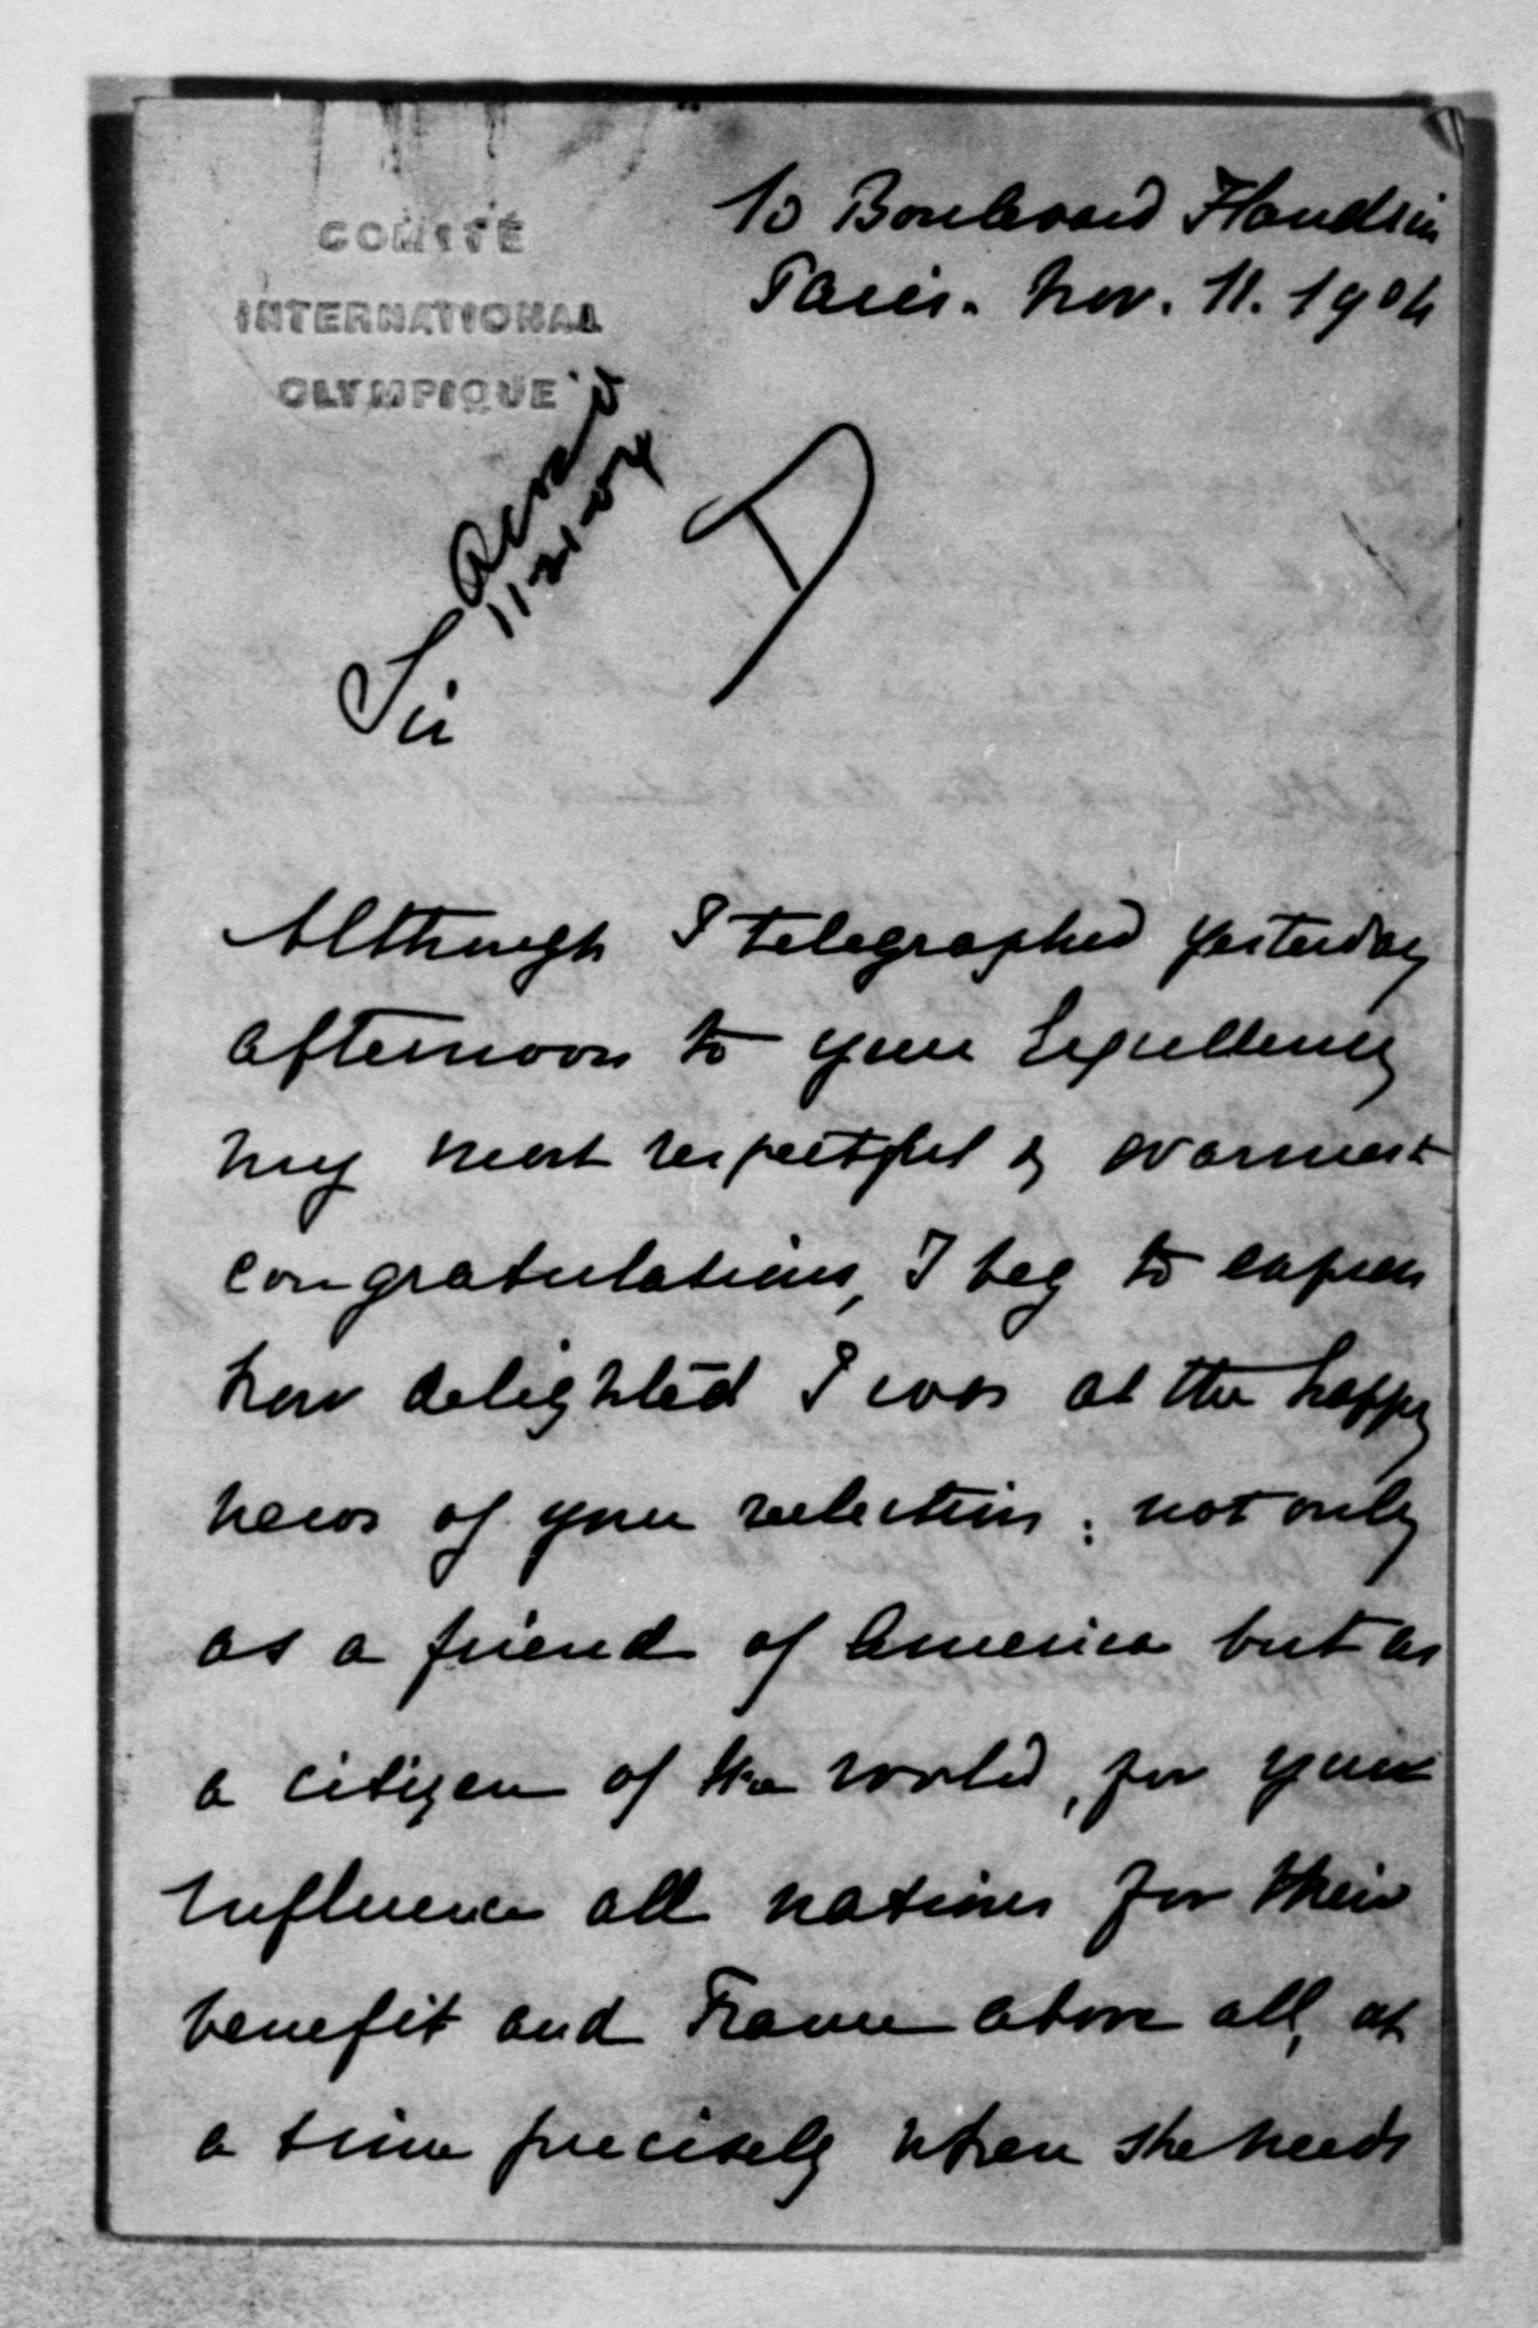 COMITÉ
INTERNATIONAL
OLYMPIQUE
10 Boulevard Flandrin
Paris. Nov. 11. 1904
Ackd
11-21-04
P
Sir
Although I telegraphed yesterday
afternoon to your Excellency
my most respectful & warmest
congratulations, I beg to express
how delighted I was at the happy
news of your reelection; not only
as a friend of America but as
a citizen of the world, for you
influence all nations for their
benefit and France above all, at
a time precisely when she needs